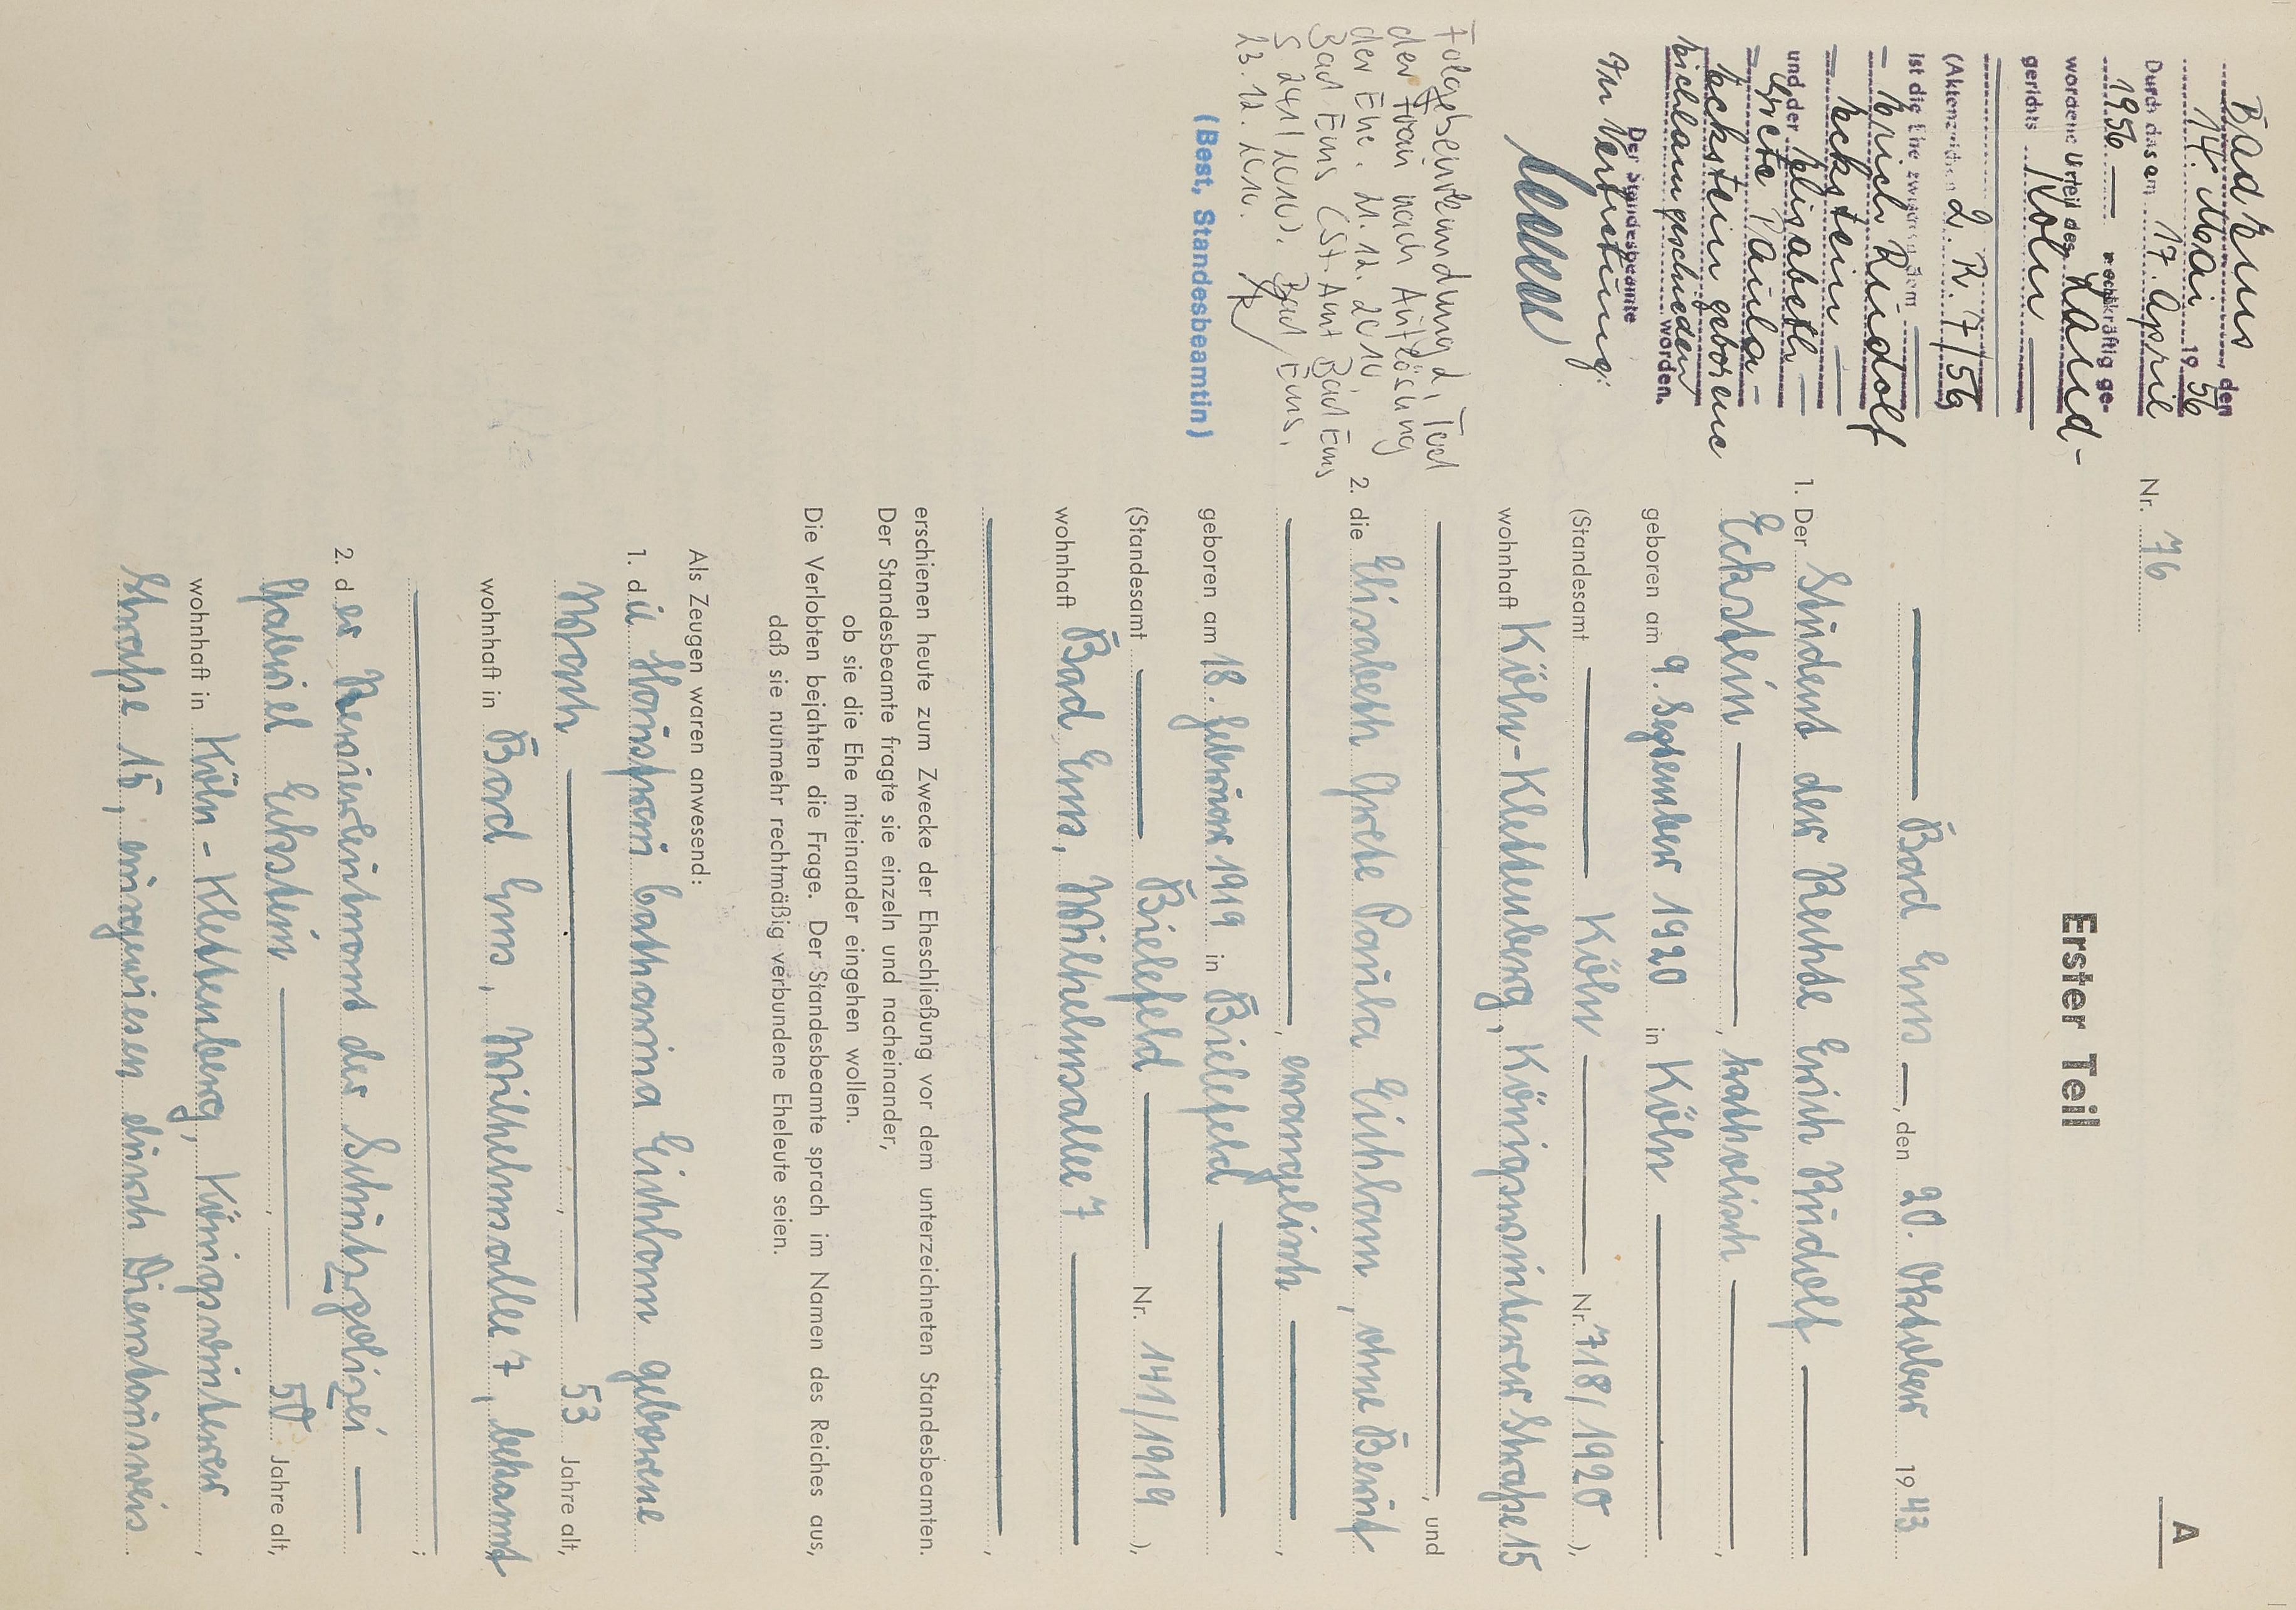 A
Erster Teil
Nr. 76
Bad Ems, den 20. Oktober 1943
1. Der Student der Rechte Erich Rudolf
Eckstein, katholisch,
geboren am 9. September 1920 in Köln
(Standesamt Köln Nr. 718/1920),
wohnhaft Köln-Klettenberg, Königswinterer Straße 15
, und
2. die Elisabeth Grete Paula Eichbaum, ohne Beruf
, evangelisch,
geboren am 18. Februar 1919 in Bielefeld
(Standesamt Bielefeld Nr. 141/1919),
wohnhaft Bad Ems, Wilhelmsallee 7
,
erschienen heute zum Zwecke der Eheschließung vor dem unterzeichneten Standesbeamten.
Der Standesbeamte fragte sie einzeln und nacheinander,
ob sie die Ehe miteinander eingehen wollen.
Die Verlobten bejahten die Frage. Der Standesbeamte sprach im Namen des Reiches aus,
daß sie nunmehr rechtmäßig verbundene Eheleute seien.
Als Zeugen waren anwesend:
1. die Hausfrau Katharina Eichbaum geborene
, 53 Jahre alt,
wohnhaft in Bad Ems, Wilhelmsallee 7, bekannt
;
2. der Revierleutnant der Schutzpolizei
Gabriel Eckstein, 50 Jahre alt,
wohnhaft in Köln-Klettenberg, Königswinterer,
Straße 15, ausgewiesen durch Dienstausweis.
Bad Ems, den
14. Mai 1956
Durch das am 17. April
1956 rechtskräftig ge-
wordene Urteil des Land-
gerichts Köln
(Aktenzeichen 2. R. 7/56)
ist die Ehe zwischen dem
Erich Rudolf
Eckstein
und der Elisabeth
Grete Paula
Eckstein geborene
Eichbaum geschieden worden.
Der Standesbeamte
In Vertretung:
Folgebeurkundung d. Tod
der Frau nach Auflösung
der Ehe. 21.12.2010
Bad Ems (St.Amt Bad Ems
S 241/2010). Bad Ems,
23.12.2010.
(Best, Standesbeamtin)